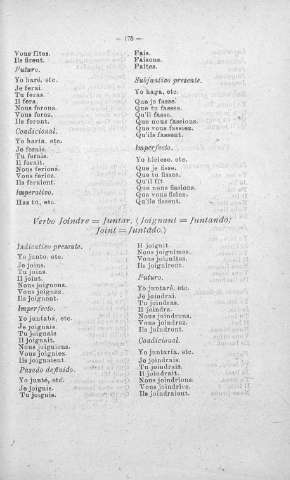 — 175 —
Vous fîtes.
Ils firent.
Futuro.
Yo haré, etc.
Je ferai.
Tu feras.
Il fera.
Nous ferons.
Vous ferez.
Ils feront.
Condicional.
Yo haría, etc.
Je ferais.
Tu ferais.
Il ferait.
Nous ferions.
Vous feriez.
Ils feraient.
Imperativo.
Haz tú, etc.
Fais.
Faisons.
Faites.
Subjuntivo presente.
Yo haga, etc.
Que je fasse.
Que tu fasses.
Qu'il fasse.
Que nous fassions.
Que vous fassiez.
Qu'ils fassent.
Imperfecto.
Yo hiciese, etc.
Que je fisse.
Que tu fisses.
Qu'il fît
Que nous fissions.
Que vous fissiez.
Qu'ils fissent.
Verbo Joindre = Juntar, (Joignant = Juntando;
Joint = Juntado.)
Indicativo presente.
Yo junto, etc.
Je joins.
Tu joins.
Il joint.
Nous joignons.
Vous joignez.
Ils joignent.
Imperfecto.
Yo juntaba, etc.
Je joignais.
Tu joignais
Il joignait.
Nous joignions.
Vous joigniez.
Ils joignaient.
Pasado definido.
Yo junté, etc.
Je joignis.
Tu joignis.
Il joignit.
Nous joignîmes.
Vous joignîtes.
Ils joignirent.
Futuro.
Yo juntaré, etc.
Je joindrai.
Tu joindras.
Il joindra.
Nous joindrons.
Vous joindrez.
Ils joindront.
Condicional.
Yo juntaría, etc.
Je joindrais.
Tu joindrais.
Il joindrait.
Nous joindrions.
Vous joindriez.
Ils joindraient.